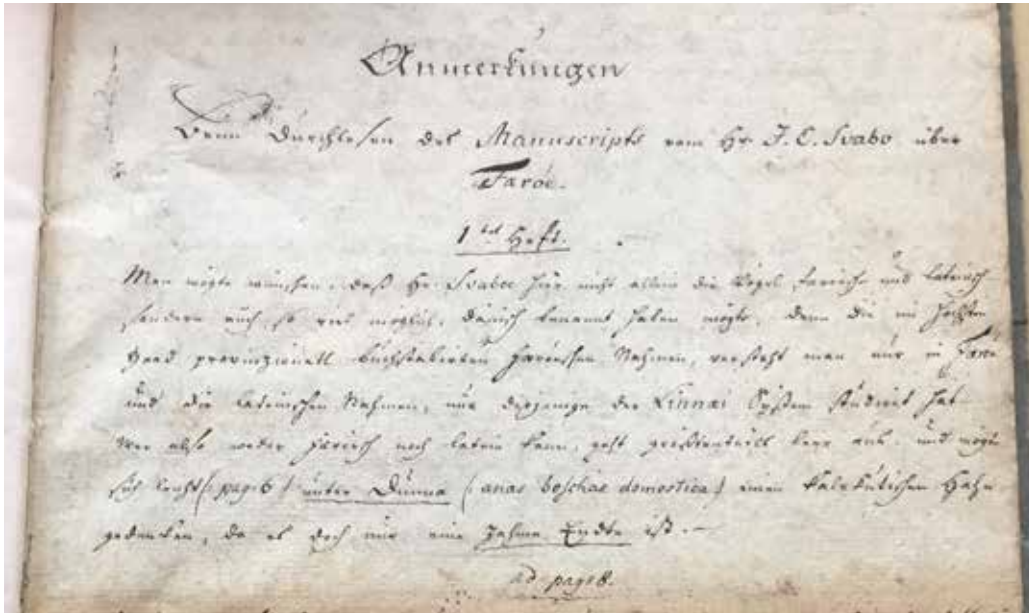 Anmerkungen
Beim Durchlesen des Manuscripts vom Hr. J. C. Svabo über
Faröe.
1tes Heft.
Man mögte wünschen, daß Hr. Svaboe hier nicht allein die Vögel faröisch und lateinisch
sondern auch, so viel möglich, dänisch benannt haben mögte, denn die im höchsten
Grad provinzionell buchstabirten faröischen Nahmen, versteht man nur in Faröe
und die lateinischen Nahmen, nur diejenige der Linnæi System studiret hat
Wer also weder faröisch noch latein kann, geht grösstentheils leer aus, und mögte
sich leicht (: page 6 :) unter Dunna (: anas boschas domestica :) einen kalekutischen Hahn
gedenken, da es doch nur eine zahme Endte ist. —
ad page 8.